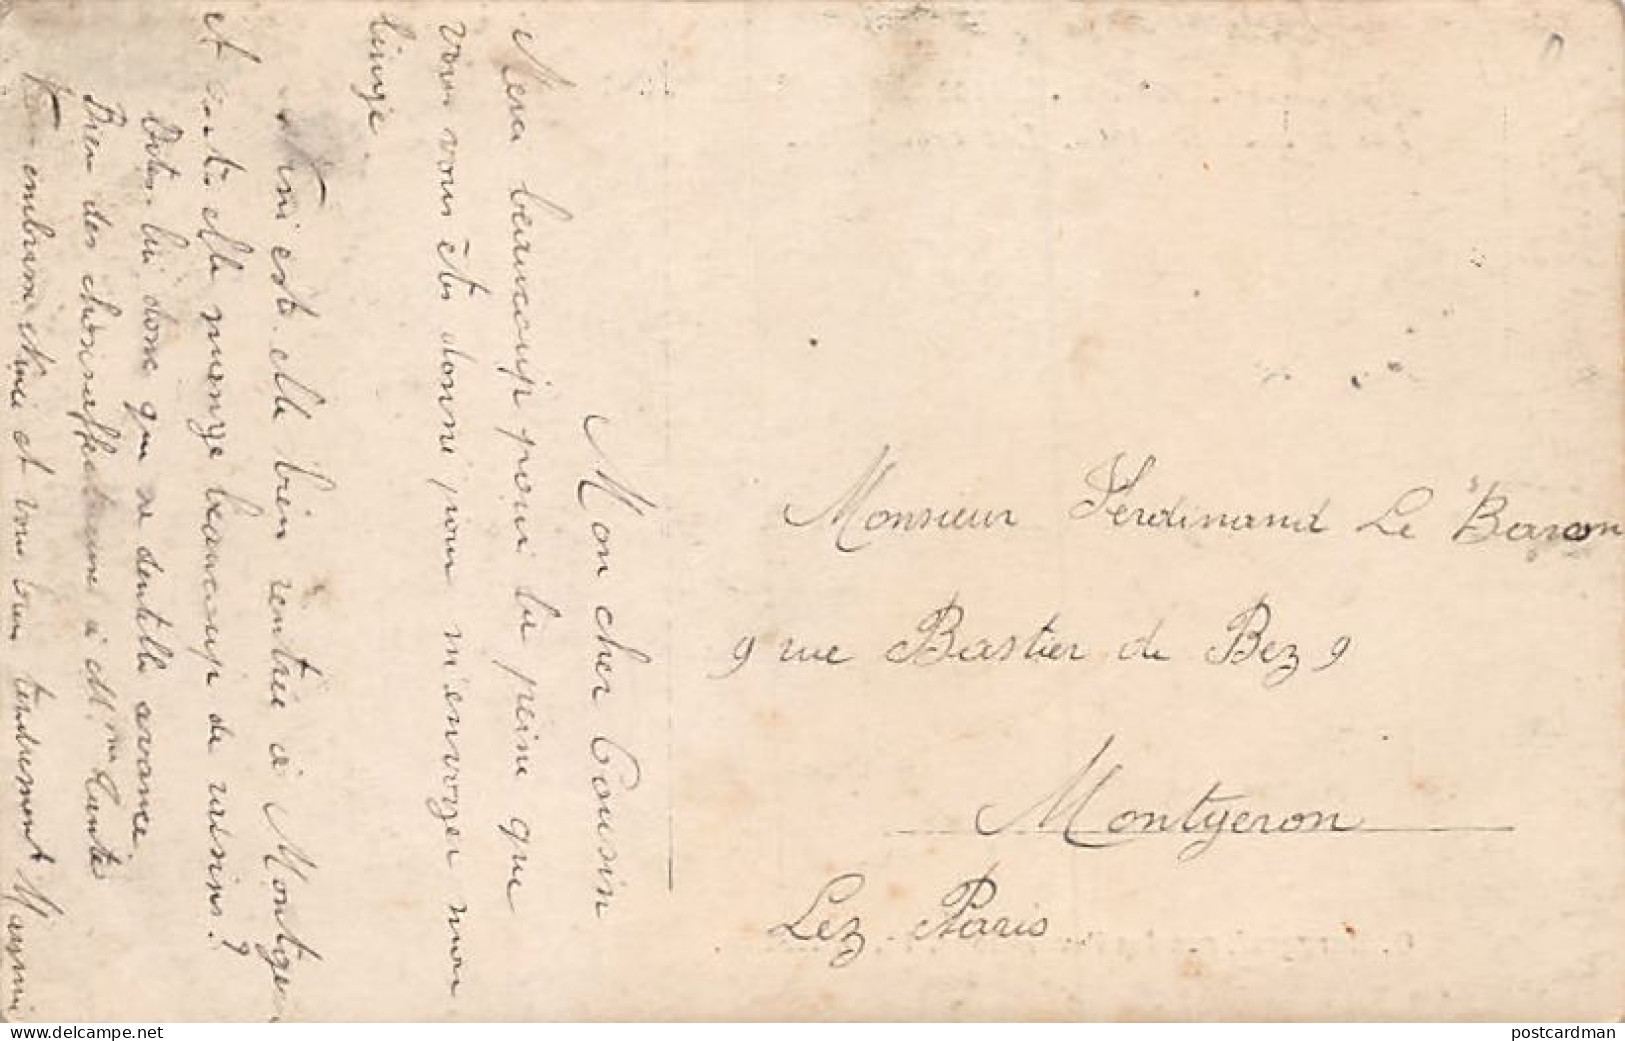 Mon cher Cousin
Merci beaucoup pour la peine que
vous vous êtes donné pour m'envoyer mon
linge.
Nini est-elle bien rentrée à Montgeron
et a-t-elle mangé beaucoup de raisins?
Dites-lui donc que sa dentelle avance.
Bien des choses affectueuses à Mme Tante
embrasse Nini et vous bien tendrement
Monsieur Ferdinand Le Baron
9 rue Bastier de Bez 9
Montgeron
Lez Paris
www.delcampe.net
postcardman